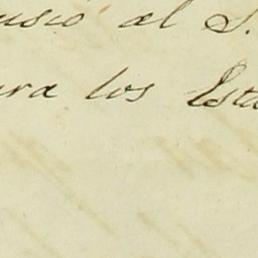 usió al S.
ura los Esta